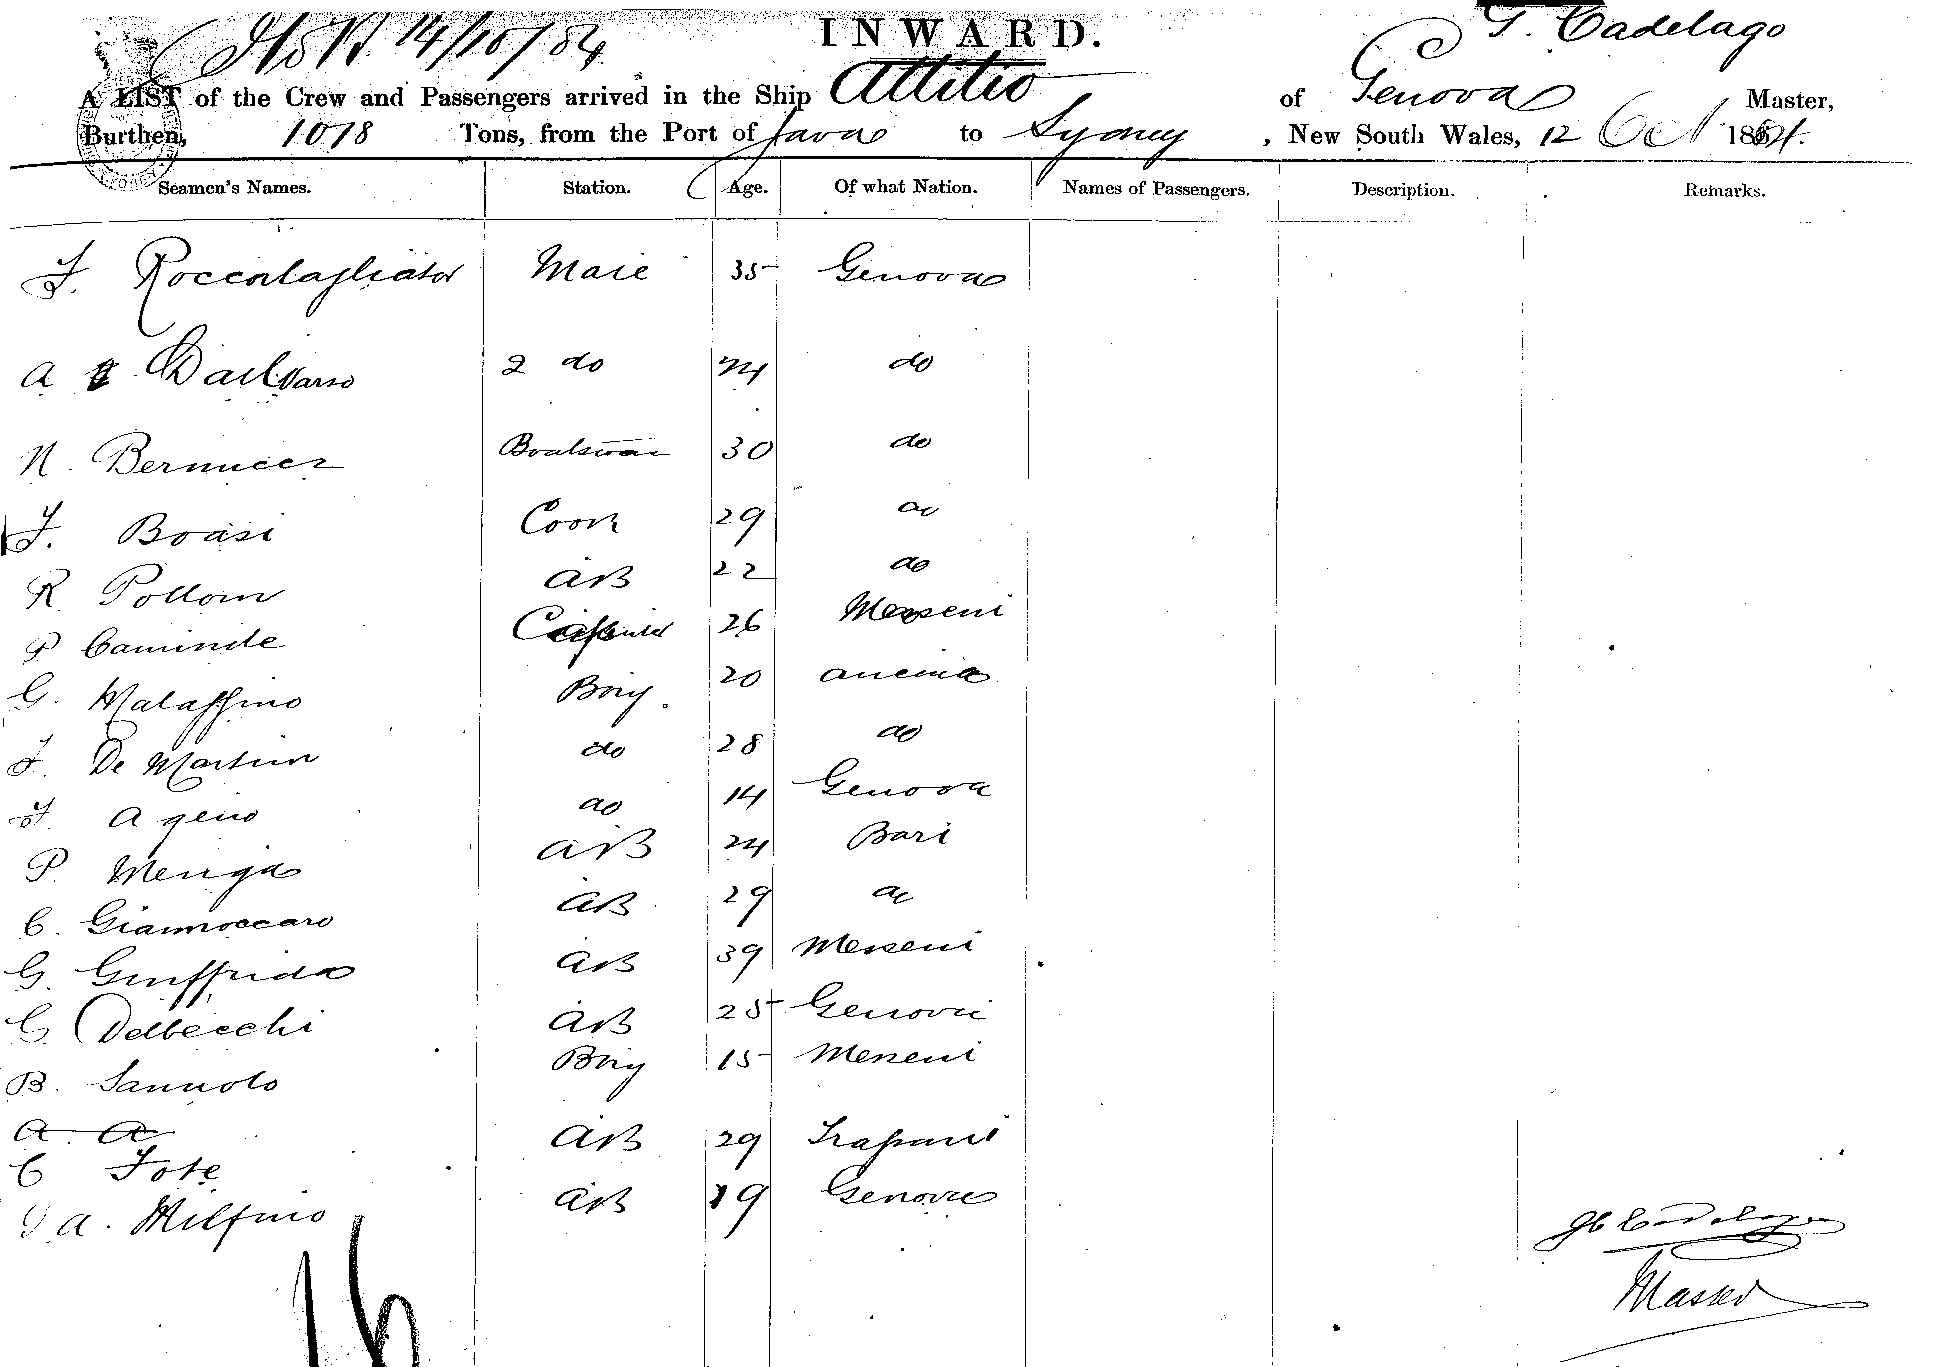 14/10/84
INWARD.
G. Cadelago
A LIST of the Crew and Passengers arrived in the Ship Attilio of Genova Master,
Burthen, 1078 Tons, from the Port of Java to Sydney, New South Wales, 12 Oct 1884.
Seamen's Names. Station. Age. Of what Nation. Names of Passengers. Description. Remarks.
F. Roccatagliata Mate 35 Genova
A 2 do 24 do
N. Bernucci Boatswain 30 do
F. Boasi Cook 29 do
R Polloni AB 22 do
P Caminite Carpenter 26 Messeni
G. Malaffino Boy. 20 ancina
F. De Martini do 28 do
F. Ageno do 14 Genova
P. Menga AB 24 Bari
C. Giannoccaro AB 29 do
G. Giuffrida AB 39 Messeni
C. Delbecchi AB 25 Genova
B. Sannolo Boy 15 Messeni
A. A
C Fote AB 29 Trapani
G A. Milfino AB 19 Genova
Master
16